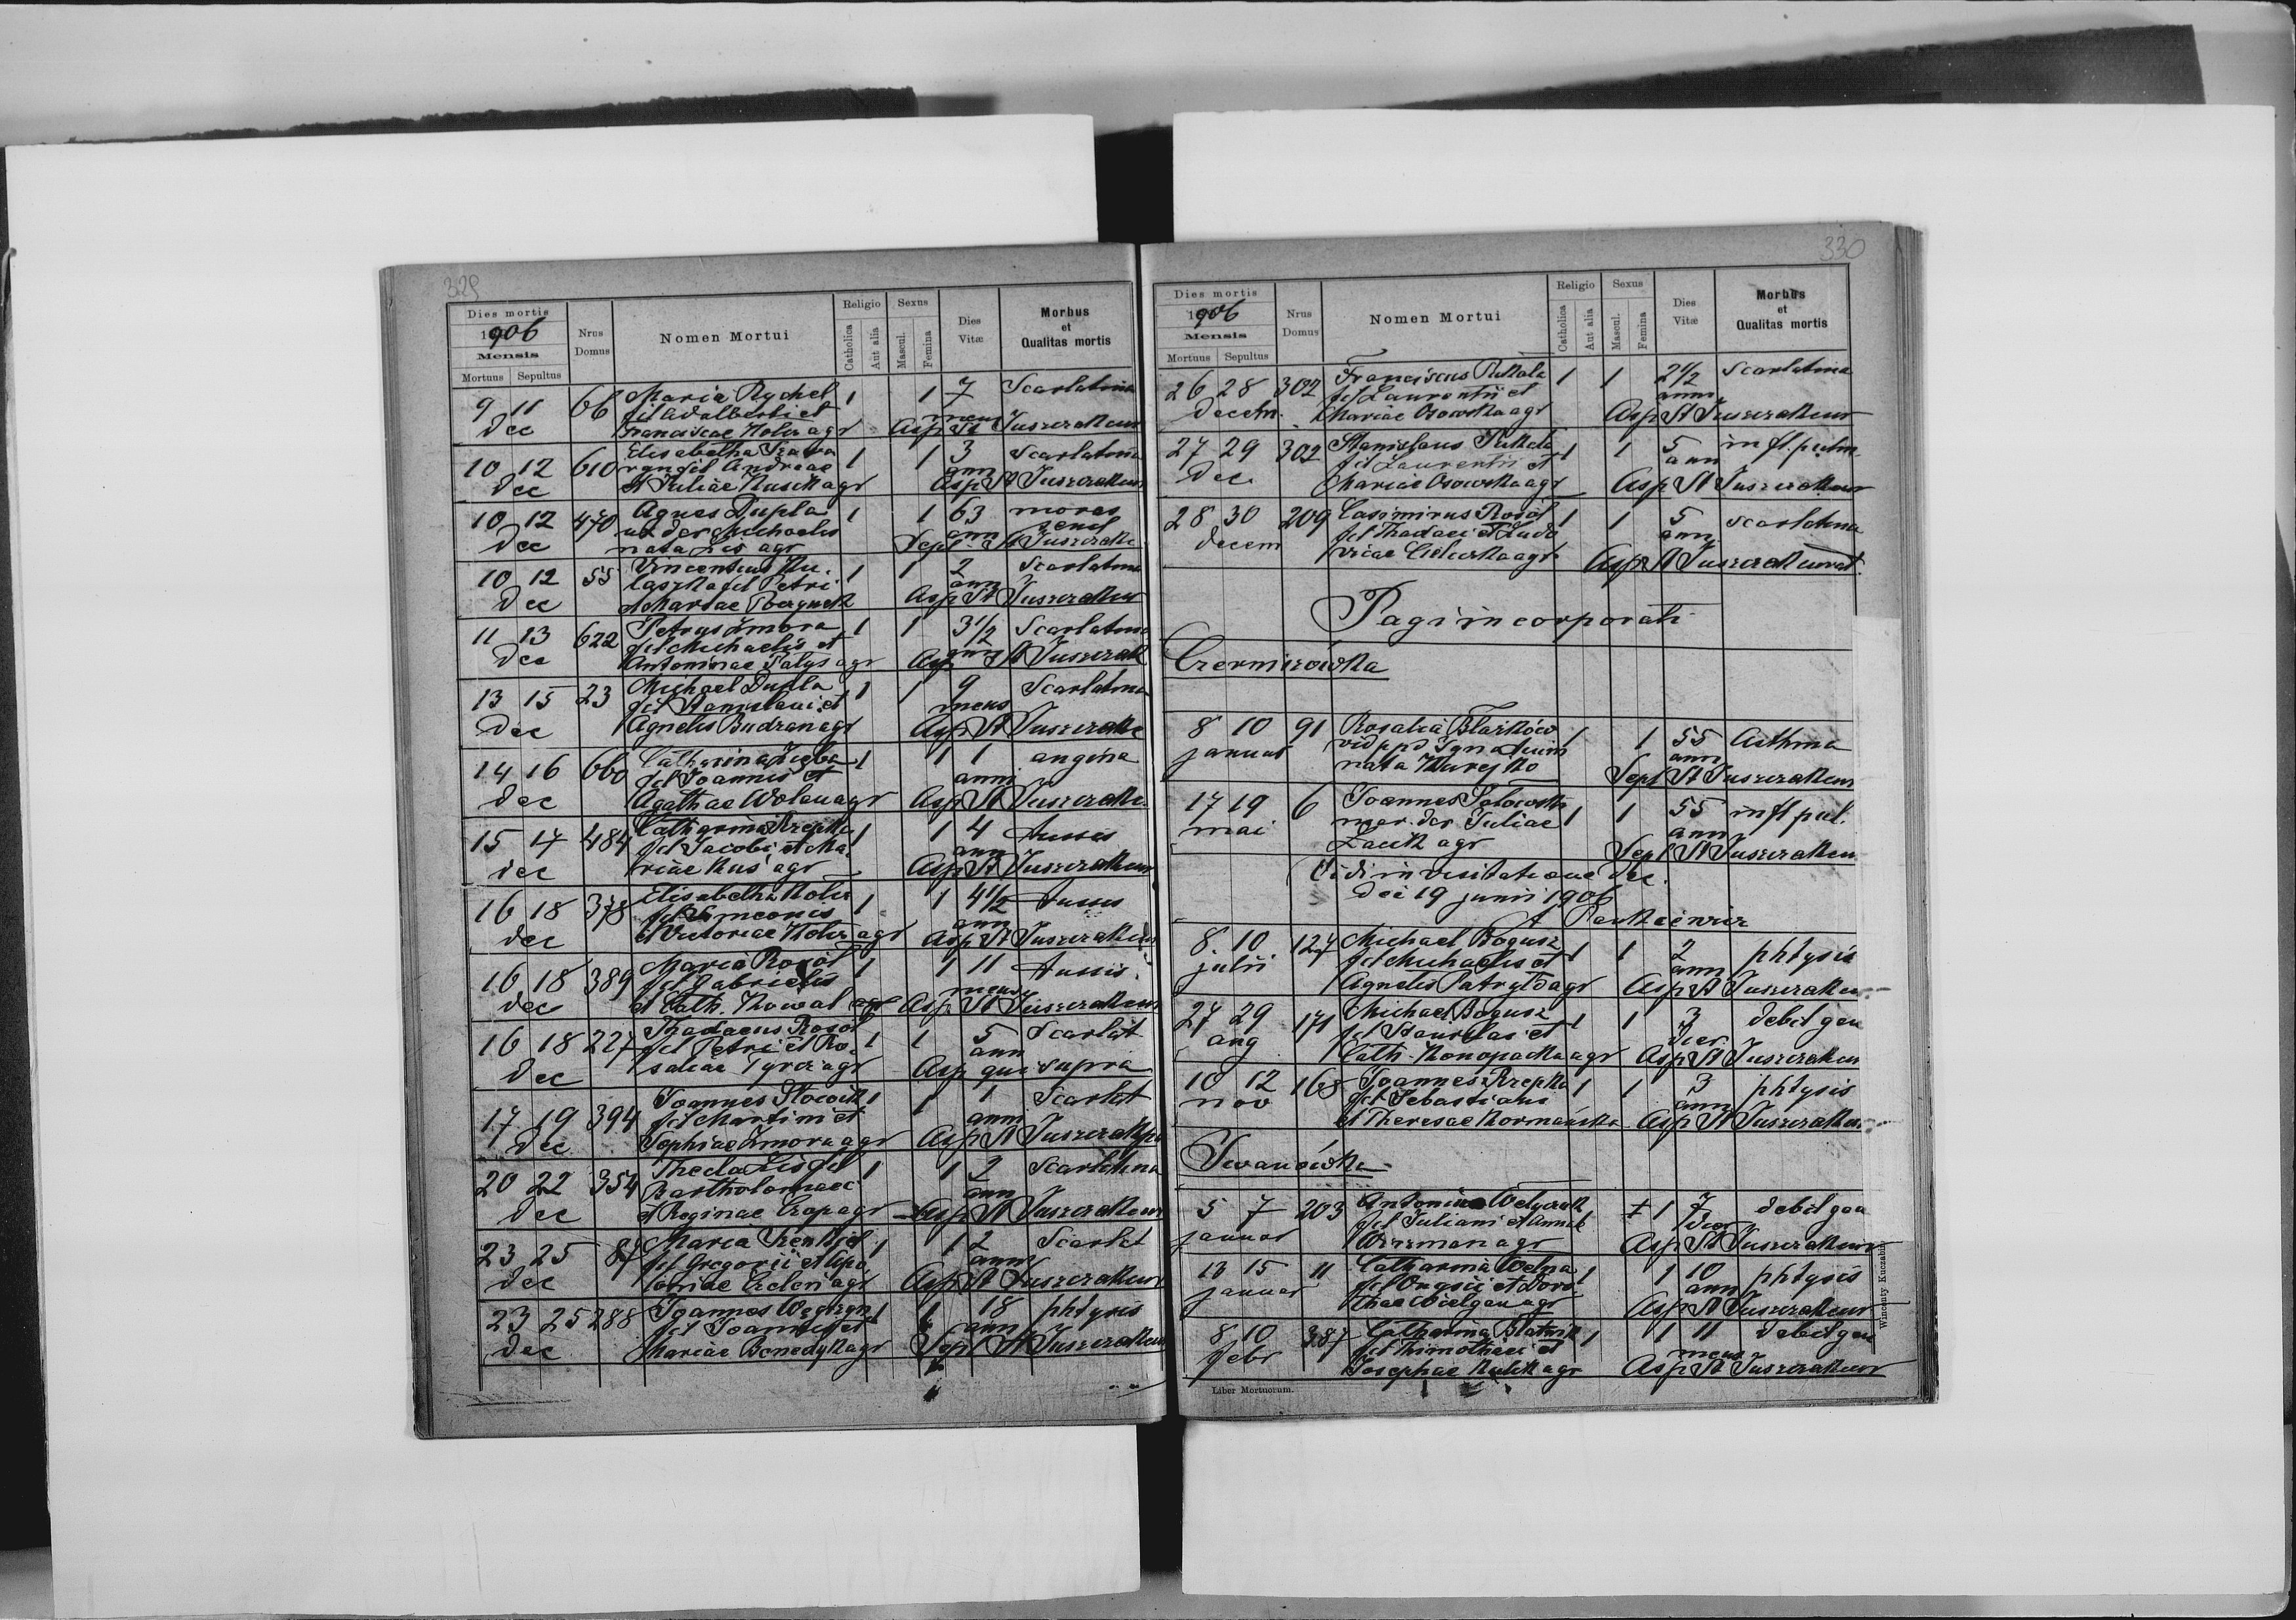 329
Dies mortis
1906
Mensis
Mortuus Sepultus
Nrus Domus
Nomen Mortui
Religio
Catholica
Aut alia
Sexus
Mascul.
Femina
Dies Vitæ
Morbus et Qualitas mortis
9 11 66 Maria Rychel 1 1 7 Scarlatina
Dec fil Adalberti et mens
Franciscae Kolis agr Asp St Juszczakiew
10 12 610 Elisabetha 1 1 3 Scarlatina
Dec fil Andreae ann
et Juliae Kusik agr Asp St Juszczakiew
10 12 470 Agnes Dupla 1 1 63 moras
Dec ux der Michaelis ann senil
nata Lis agr Sepl St Juszczakie
10 12 55 Vincentius Ku 1 1 2 Scarlatina
Dec laszka fil Petri ann
et Mariae Asp St Juszczakiew
11 13 622 Petrus Zmora 1 1 3 1/2 Scarlatina
Dec fil Michaelis et ann
Antoninae Patys agr Asp St Juszczak
13 15 23 Michael Dupla 1 1 9 Scarlatina
Dec fil Stanislai et mens
Agnetis Budzan agr Asp St Juszczakie
14 16 660 Catharina Zięba 1 1 1 angina
dec fil Joannis et anni
Agathae Wolan agr Asp St Juszczakie
15 17 484 Catharina Rzepka 1 1 4 tussis
dec fil Jacobi et Ma ann
riae Kus agr Asp St Juszczakiew
16 18 378 Elisabetha Kolis 1 1 4 1/2 tussis
dec fil Simeonis ann
et Victoriae Kolis agr Asp St Juszczakiew
16 18 389 Maria Rosół 1 1 11 tussis
dec fil Gabrielis mens
et Cath. Kowal agr Asp St Juszczakiew
16 18 227 Thadaeus Rosół 1 1 5 Scarlat
Dec fil Petri et Ro ann
saliae agr Asp qui supra
17 19 394 Joannes 1 1 1 Scarlat
Dec fil Martini et ann
Sophiae Zmora agr Asp St Juszczakiew
20 22 354 Thecla Lis fil 1 1 2 Scarlatina
Dec Bartholomaei ann
et Reginae Czop agr Asp St Juszczakiew
23 25 87 Maria 1 1 2 Scarlat
dec fil Gregorii et Apo ann
loniae agr Asp St Juszczakiew
23 25 288 Joannes Węgrzyn 1 1 18 phtysis
Dec fil Joannis et ann
Mariae Benedyk agr Sepl St Juszczakiew
330
Dies mortis
1906
Mensis
Mortuus Sepultus
Nrus Domus
Nomen Mortui
Religio
Catholica
Aut alia
Sexus
Mascul.
Femina
Dies Vitæ
Morbus et Qualitas mortis
26 28 302 Franciscus Pikala 1 1 2 1/2 Scarlatina
Decem. fil Laurentii et anni
Mariae Osowska agr Asp St Juszczakiew
27 29 302 Stanislaus Pikala 1 1 5 infl. pulm
Dec. fil Laurentii et ann
Mariae Osowska agr Asp St Juszczakiew
28 30 209 Casimirus Rosół 1 1 5 Scarlatina
Decem fil Thadaei et Ludo ann
vicae agr Asp St Juszczakiewicz
Pagi incorporati
Czerniszówka
8 10 91 Rosalia Błażków 1 1 55 Asthma
januar vid ppd Ignatium ann
nata Kurejko Sepl St Juszczakiew
17 19 6 Joannes 1 1 55 infl pul.
mai mar der Juliae ann
Zaük agr Sepl St Juszczakiew
Vidi in visitatione Dec.
Dei 19 junii 1906
8 10 127 Michael Bogusz 1 1 2 phtysis
julii fil Michaelis et ann
Agnetis Patryło agr Asp St Juszczakiew
27 29 171 Michael Bogusz 1 1 3 debil gen
aug fil Stanislai et dier
Cath Konopacka agr Asp St Juszczakiew
10 12 168 Joannes Rzepka 1 1 3 phtysis
nov fil Sebastiani ann
et Theresae Kormańska Asp St Juszczakiew
Iwanówka
5 7 203 Antonina 1 7 debil gen
januar fil Juliani et Annae dier
agr Asp St Juszczakiew
13 15 11 Catharina Wełna 1 1 10 phtysis
januar fil et Doro ann
theae Wielgan agr Asp St Juszczakiew
8 10 387 Catharina Błatnik 1 1 11 debil gen
febr fil Thimothei et mens
Josephae Kulik agr Asp St Juszczakiew
Liber Mortuorum.
Wincenty Kuczabiń